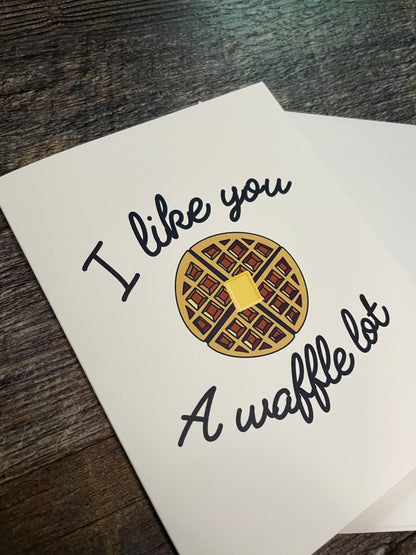 I like you
A waffle lot